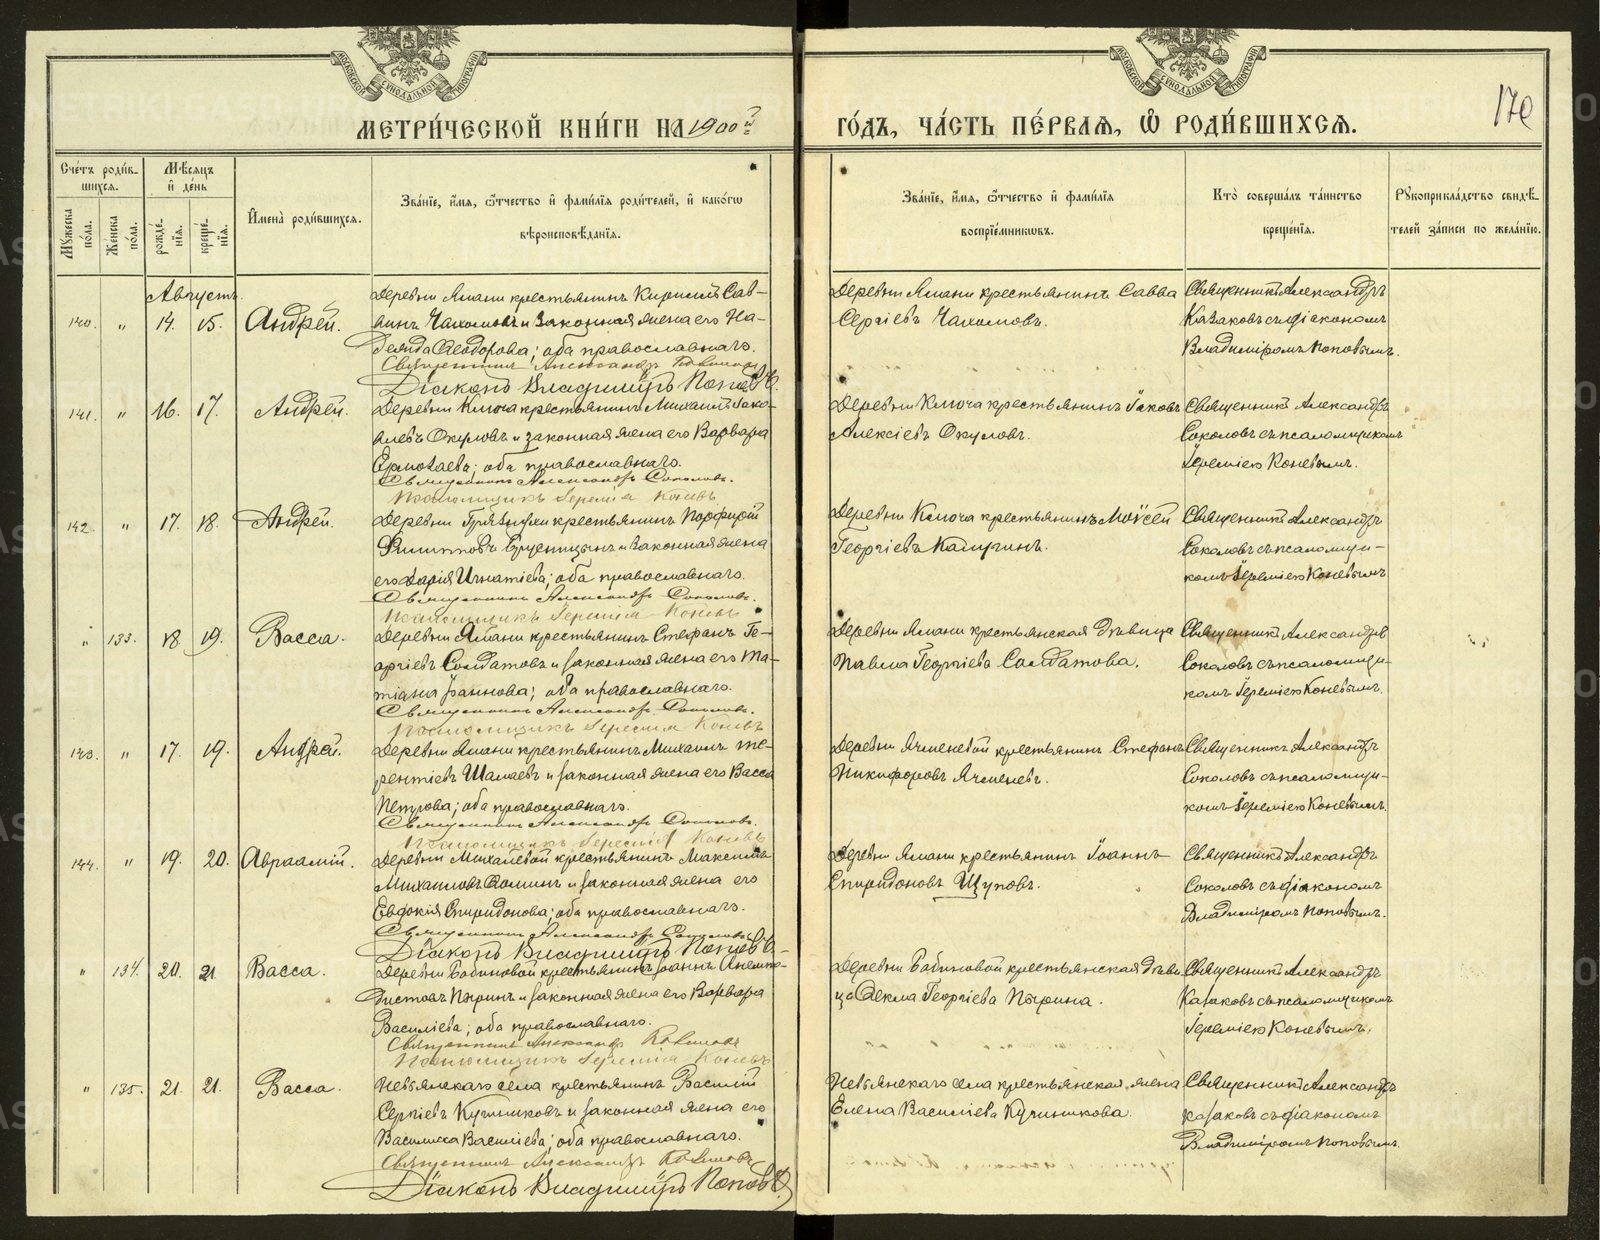 МОСКОВСКОЙ СѴНОДАЛЬНОЙ ТИПОГРАФІИ
МОСКОВСКОЙ СѴНОДАЛЬНОЙ ТИПОГРАФІИ
170
МЕТРИ́ЧЕСКОЙ КНИ́ГИ НА 1900 й
ГО́ДЪ, ЧА́СТЬ ПЕ́РВАѦ, Ѿ РОДИ́ВШИХСѦ.
Сче́тъ роди́в-
шихся.
Мѣ́сяцъ
и҆ де́нь
Му́жеска
по́ла.
Же́нска
по́ла.
рожде́-
нїя.
креще́-
нїя.
И҆мена̀ роди́вшихся.
Зва́нїе, и҆́мя, ѻ҆́тчество и҆ фами́лїя роди́телей, и҆ како́гѡ
вѣроисповѣ́данїя.
Зва́нїе, и҆́мя, ѻ҆́тчество и҆ фами́лїя
воспрїе́мникѡвъ.
Кто̀ соверша́лъ та́инство
креще́нїя.
Рукоприкла́дство свидѣ́-
телей за́писи по жела́нїю.
Августъ.
140. " 14. 15. Андрей.
Деревни Ямани крестьянинъ Кириллъ Сав-
винъ Чахломовъ и законная жена его На-
Ѳеодорова; оба православнаго.
Священникъ Александръ Казаковъ
Діаконъ Владиміръ Поповъ.
Деревни Ямани крестьянинъ Савва
Сергіевъ Чахломовъ.
Священникъ Александръ
Казаковъ съ діакономъ
Владиміромъ Поповымъ.
141. " 16. 17. Андрей.
Деревни Ключа крестьянинъ Михаилъ Іако-
влевъ Окуловъ и законная жена его Варвара
Ермолаева; оба православнаго.
Священникъ Александръ Соколовъ.
Псаломщикъ Іеремія Коневъ
Деревни Ключа крестьянинъ Іаковъ
Алексіевъ Окуловъ.
Священникъ Александръ
Соколовъ съ псаломщикомъ
Іереміею Коневымъ.
142. " 17. 18. Андрей.
Деревни крестьянинъ Порфирій
Филипповъ и законная жена
его Дарія Игнатіева; оба православнаго.
Священникъ Александръ Соколовъ.
Псаломщикъ Іеремія Коневъ
Деревни Ключа крестьянинъ Моѵсей
Георгіевъ
Священникъ Александръ
Соколовъ съ псаломщи-
комъ Іереміею Коневымъ
" 133. 18. 19. Васса.
Деревни Ямани крестьянинъ Стефанъ Ге-
оргіевъ Солдатовъ и законная жена его Та-
тіана Іоаннова; оба православнаго.
Священникъ Александръ Соколовъ.
Псаломщикъ Іеремія Коневъ
Деревни Ямани крестьянская дѣвица
Павла Георгіева Солдатова.
Священникъ Александръ
Соколовъ съ псаломщи-
комъ Іереміею Коневымъ.
143. " 17. 19. Андрей.
Деревни Ямани крестьянинъ Михаилъ Те-
рентіевъ Шамаевъ и законная жена его Васса
Петрова; оба православнаго.
Священникъ Александръ Соколовъ.
Псаломщикъ Іеремія Коневъ
Деревни Ячменевой крестьянинъ Стефанъ
Никифоровъ Ячменевъ.
Священникъ Александръ
Соколовъ съ псаломщи-
комъ Іереміею Коневымъ.
144. " 19. 20. Авраамій.
Деревни Михалевой крестьянинъ Максимъ
Михаиловъ и законная жена его
Евдокія Спиридонова; оба православнаго.
Священникъ Александръ Соколовъ
Діаконъ Владиміръ Поповъ.
Деревни Ямани крестьянинъ Іоаннъ
Спиридоновъ Щуповъ.
Священникъ Александръ
Соколовъ съ діакономъ
Владиміромъ Поповымъ.
" 134. 20. 21. Васса.
Деревни Бабиновой крестьянинъ Іоаннъ Анемпо-
дистовъ Пыринъ и законная жена его Варвара
Василіева; оба православнаго.
Священникъ Александръ Казаковъ
Псаломщикъ Іеремія Коневъ
Деревни Бабиновой крестьянская дѣви-
ца Ѳекла Георгіева Пырина.
Священникъ Александръ
Казаковъ съ псаломщикомъ
Іереміею Коневымъ.
" 135. 21. 21. Васса.
Невьянскаго села крестьянинъ Василій
Сергіевъ и законная жена его
Василисса Василіева; оба православнаго.
Священникъ Александръ Казаковъ
Діаконъ Владиміръ Поповъ.
Невьянскаго села крестьянская жена
Елена Василіева
Священникъ Александръ
Казаковъ съ діакономъ
Владиміромъ Поповымъ.